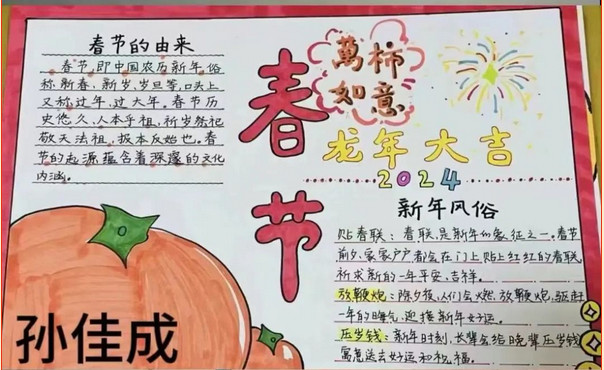 春节的由来
春节,即中国农历新年,俗
称新春,新岁,岁旦等,口头上
又称过年,过大年。春节历
史悠久,人本乎祖,祈岁祭祀
敬天法祖,报本反始也。春
节的起源蕴含着深邃的文化
内涵。
春节
萬柿
如意
龙年大吉
2024
新年风俗
贴春联：春联是新年的象征之一。春节
前夕、家家户户都会在门上贴上红红的春联
祈求新的一年平安、吉祥。
放鞭炮：除夕夜,人们会燃放鞭炮,驱赶
一年的晦气,迎接新年好运。
压岁钱：新年时刻,长辈会给晚辈压岁钱
寓意送去好运和祝福。
孙佳成